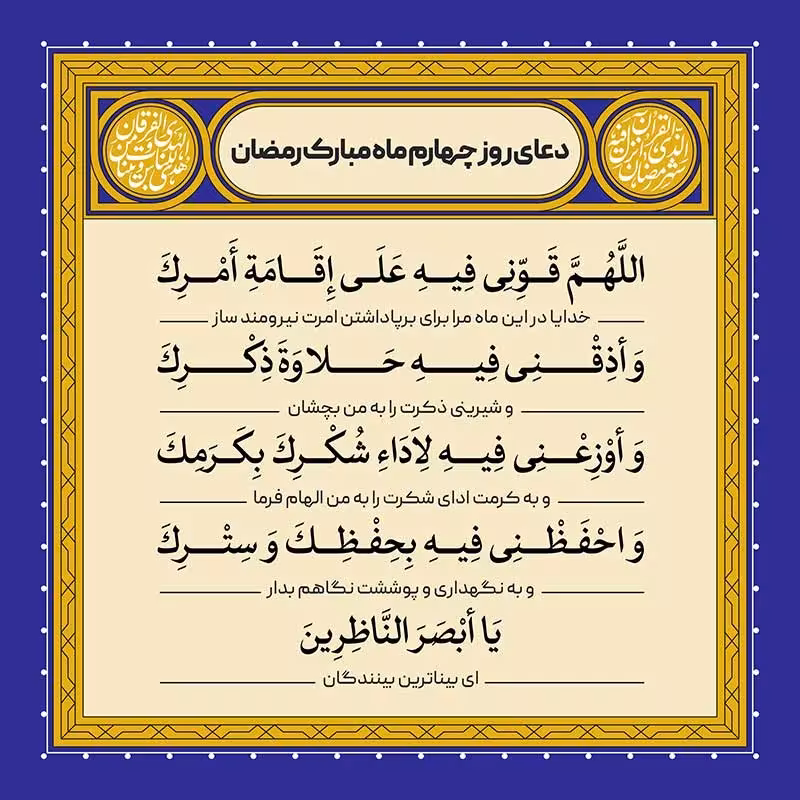 دعای روز چهارم ماه مبارک رمضان
اللَّهُمَّ قَوِّنِی فِیهِ عَلَی إِقَامَةِ أَمْرِكَ
خدایا در این ماه مرا برای برپاداشتن امرت نیرومند ساز
وَ أَذِقْنِی فِیهِ حَلاوَةَ ذِكْرِكَ
و شیرینی ذکرت را به من بچشان
وَ أَوْزِعْنِی فِیهِ لِأَدَاءِ شُكْرِكَ بِكَرَمِكَ
و به کرمت ادای شکرت را به من الهام فرما
وَ احْفَظْنِی فِیهِ بِحِفْظِكَ وَ سِتْرِكَ
و به نگهداری و پوششت نگاهم بدار
يَا أَبْصَرَ النَّاظِرِينَ
ای بیناترین بینندگان